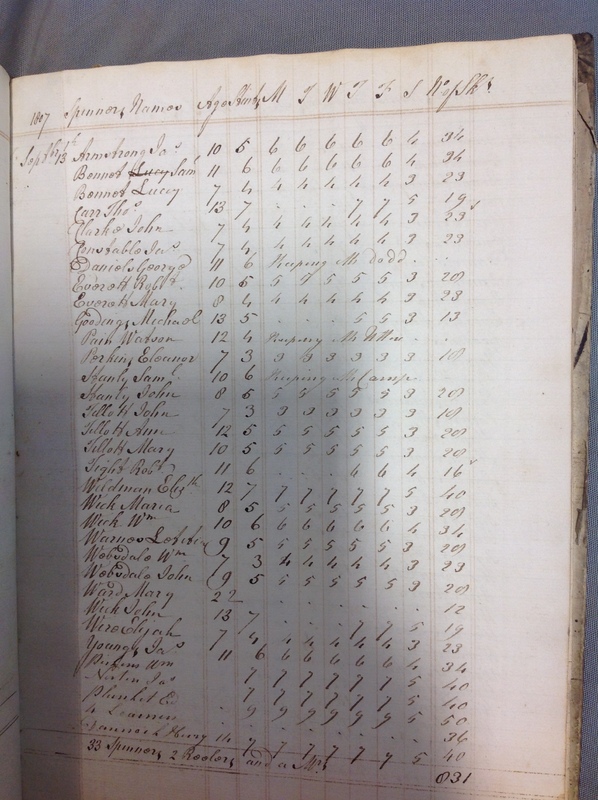 1807 Spinners Names Age Stints M T W T F S No of Sks
Septr 13th Armstrong Jas 10 5 6 6 6 6 6 4 34
Bennet Lucy Saml 11 6 6 6 6 6 6 4 34
Bennet Lucey 7 4 4 4 4 4 4 3 23
Carr Thos 13 7 . . . 7 7 5 19
Clarke John 7 4 4 4 4 4 4 3 23
Constable Jas 7 4 4 4 4 4 4 3 23
Daniels George 11 6 Keeping Mr Dodd
Everett Robt 10 5 5 5 5 5 5 3 28
Everett Mary 8 4 4 4 4 4 4 3 23
Gooding Michael 13 5 . . . 5 5 3 13
Pain Watson 12 4 Keeping Mr
Perkins Eleanor 7 3 3 3 3 3 3 3 18
Stanly Saml 10 6 Keeping Mr Camp
Stanly John 8 5 5 5 5 5 5 3 28
Tillott John 7 3 3 3 3 3 3 3 18
Tillott Ann 12 5 5 5 5 5 5 3 28
Tillott Mary 10 5 5 5 5 5 5 3 28
Tight Robt 11 6 . . . 6 6 4 16
Wildman Elizth 12 7 7 7 7 7 7 5 40
Wick Maria 8 5 5 5 5 5 5 3 28
Wick Wm 10 6 6 6 6 6 6 4 34
Warnes 9 5 5 5 5 5 5 3 28
Websdale Wm 7 3 4 4 4 4 4 3 23
Websdale John 9 5 5 5 5 5 5 3 28
Ward Mary 22 . . . . . 12
Wick John 13 7 . . . 7 7 5 19
Were Elijah 7 4 4 4 4 4 4 3 23
Youngs Jas 11 6 6 6 6 6 6 4 34
Wm 7 7 7 7 7 7 5 40
Jas 7 7 7 7 7 7 5 40
Plunket Ed . 9 9 9 9 9 9 5 50
4 Learners . . . . . 36
Henry 14 7 7 7 7 7 7 5 40
33 Spinners 2 Reelers and a
831